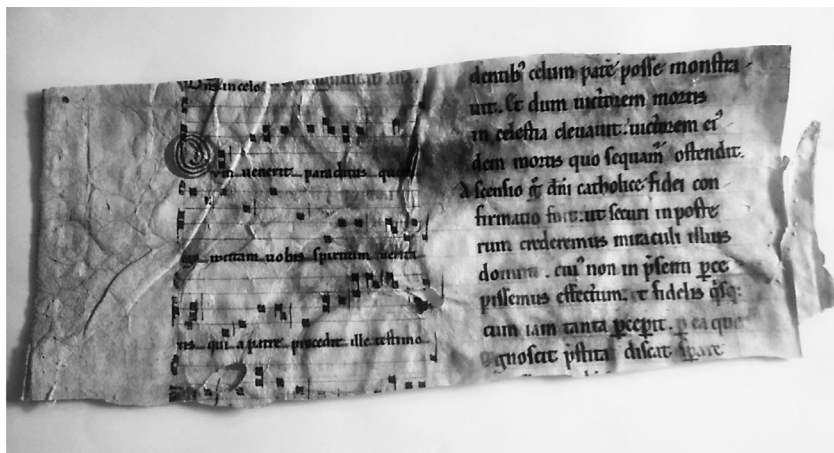 Dns in celo
um uenerit paraclitus quem
ego mittam uobis spiritum uerita
tis qui a patre procedit ille testimo
dentibꝰ celum patē posse monstra
uit. Et dum uictorem mortis
in celestia eleuauit: uictorem eiꝰ
dem mortis quo sequamᷣ ostendit.
Ascensio gͦ dnī catholice fidei con
firmatio fuit: ut securi in poste
rum crederemus miraculi illius
cuiꝰ non in p̄senti ꝑce
pissemus effectum. et fidelis qisq:
cum iam tanta ꝑcepit. ea que
p̄stita discat